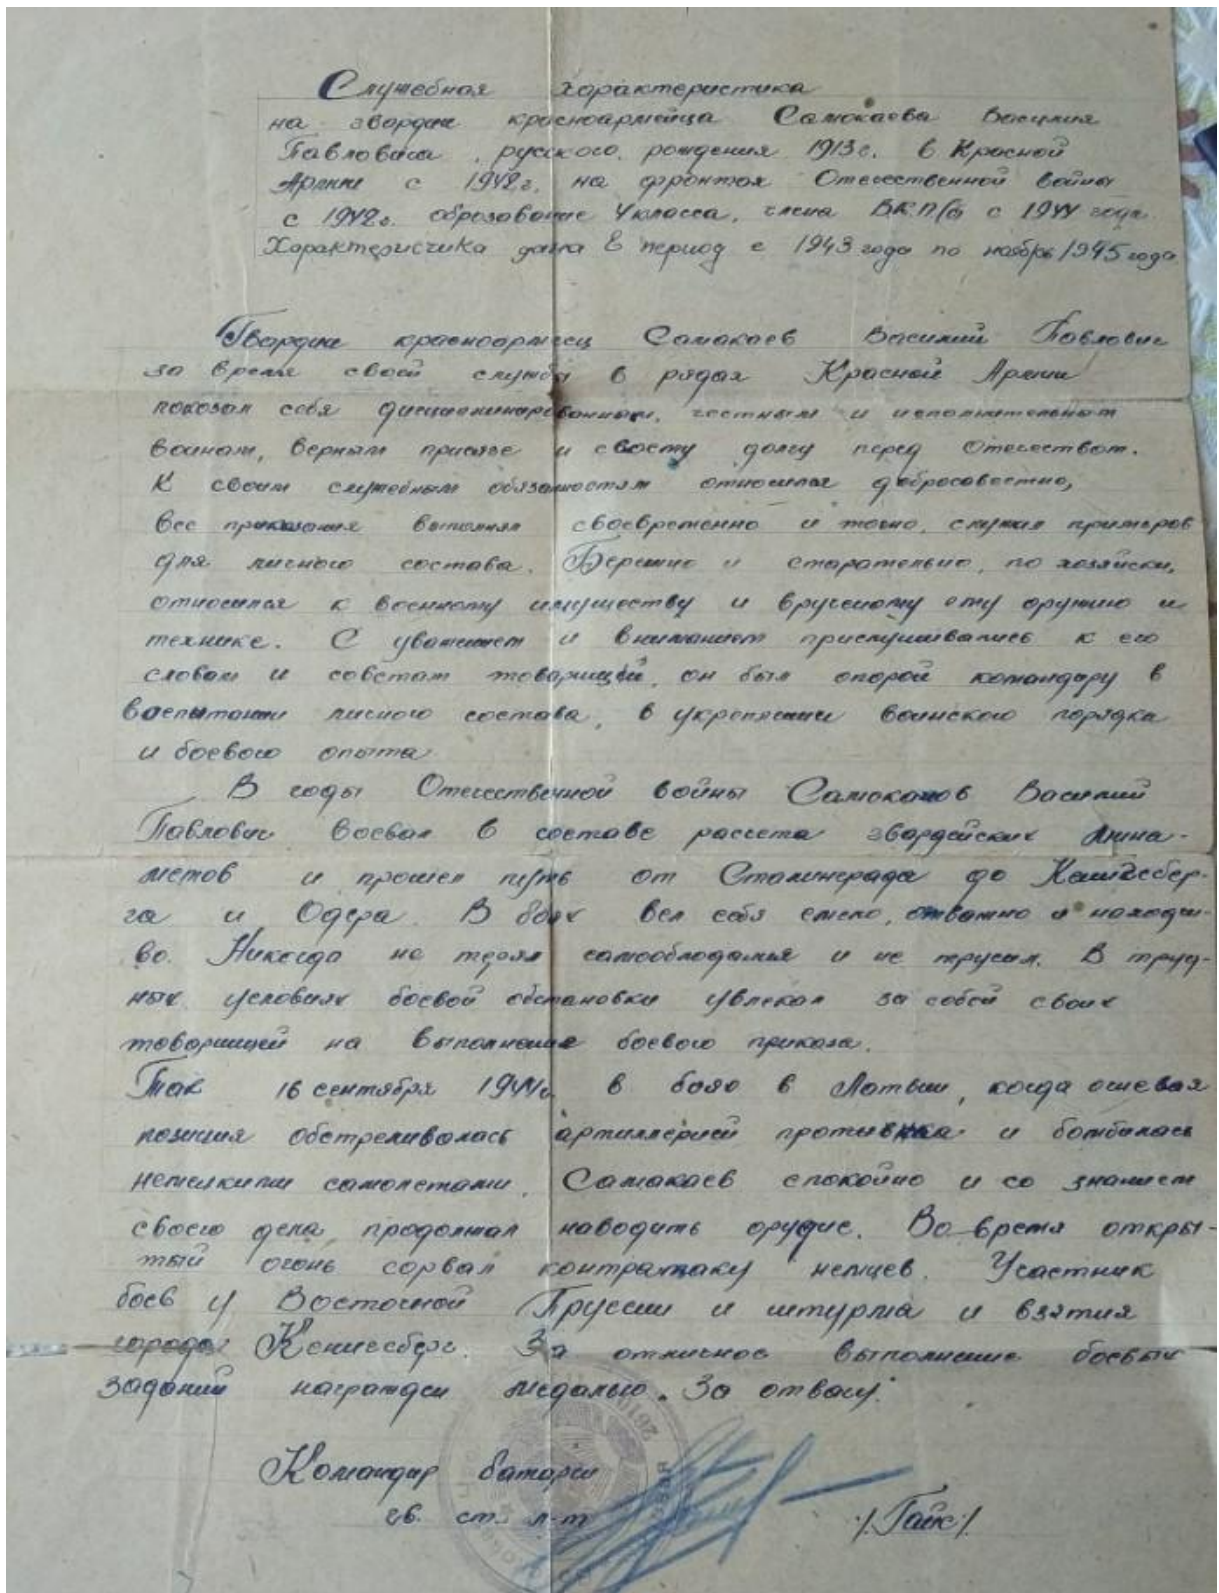 Служебная характеристика
на гвардии красноармейца Самокаева Василия
Павловича, русского, рождения 1913 г. в Красной
Армии с 1942 г. на фронтах Отечественной войны
с 1942 г. образование 4 класса, члена ВКП/б с 1944 года
Характеристика дана в период с 1943 года по ноябрь 1945 года
Гвардии красноармеец Самакаев Василий Павлович
за время своей службы в рядах Красной Армии
показал себя дисциплинированным, честным и исполнительным
воином, верным присяге и своему долгу перед Отечеством.
К своим служебным обязанностям относился добросовестно,
все приказания выполнял своевременно и точно, служил примером
для личного состава. Бережно и старательно, по хозяйски,
относился к военному имуществу и врученному ему оружию и
технике. С уважением и вниманием прислушивались к его
словам и советам товарищей, он был опорой командиру в
воспитании личного состава, в укреплении воинского порядка
и боевого опыта
В годы Отечественной войны Самокаев Василий
Павлович воевал в составе расчета гвардейских мина-
метов и прошел путь от Сталинграда до Кенигсбер-
га и Одера. В боях вел себя смело, отважно и находчи-
во. Никогда не терял самообладания и не трусил. В труд-
ных условиях боевой обстановки увлекал за собой своих
товарищей на выполнение боевого приказа.
Так 16 сентября 1944 г. в бою в Латвии, когда огневая
позиция обстреливалась артиллерией противника и бомбилась
немецкими самолетами, Самакаев спокойно и со знанием
своего дела продолжал наводить орудие. Во-время откры-
тый огонь сорвал контратаку немцев. Участник
боев у Восточной Пруссии и штурма и взятия
города Кенигсберг. За отличное выполнение боевых
заданий награжден медалью „За отвагу"
Командир батареи
гв. ст. л-т /Гайс/